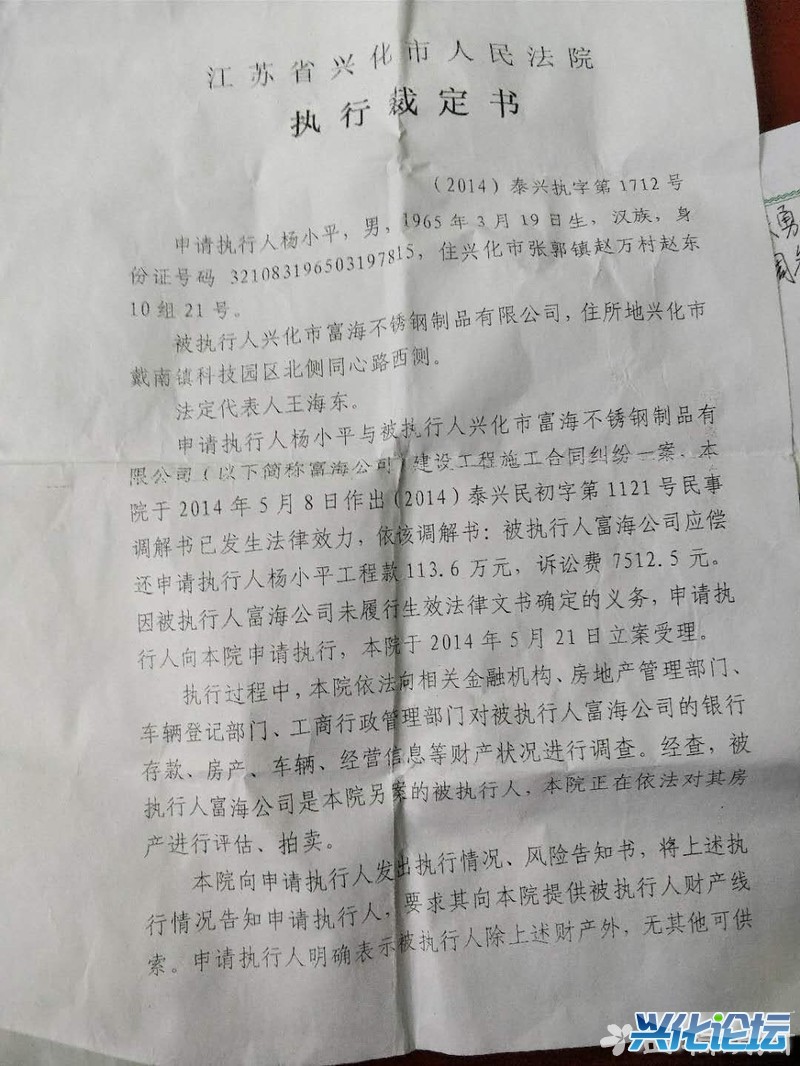 江苏省兴化市人民法院
执行裁定书
(2014)泰兴执字第1712号
申请执行人杨小平，男，1965年3月19日生，汉族，身
份证号码 321083196503197815，住兴化市张郭镇赵万村赵东
10组21号。
被执行人兴化市富海不锈钢制品有限公司，住所地兴化市
戴南镇科技园区北侧同心路西侧。
法定代表人王海东。
申请执行人杨小平与被执行人兴化市富海不锈钢制品有
限公司(以下简称富海公司)建设工程施工合同纠纷一案，本
院于2014年5月8日作出(2014)泰兴民初字第1121号民事
调解书已发生法律效力，依该调解书：被执行人富海公司应偿
还申请执行人杨小平工程款113.6万元，诉讼费7512.5元。
因被执行人富海公司未履行生效法律文书确定的义务，申请执
行人向本院申请执行，本院于2014年5月21日立案受理。
执行过程中，本院依法向相关金融机构、房地产管理部门、
车辆登记部门、工商行政管理部门对被执行人富海公司的银行
存款、房产、车辆、经营信息等财产状况进行调查。经查，被
执行人富海公司是本院另案的被执行人，本院正在依法对其房
产进行评估、拍卖。
本院向申请执行人发出执行情况、风险告知书，将上述执
行情况告知申请执行人，要求其向本院提供被执行人财产线
索。申请执行人明确表示被执行人除上述财产外，无其他可供
勇
兴化论坛